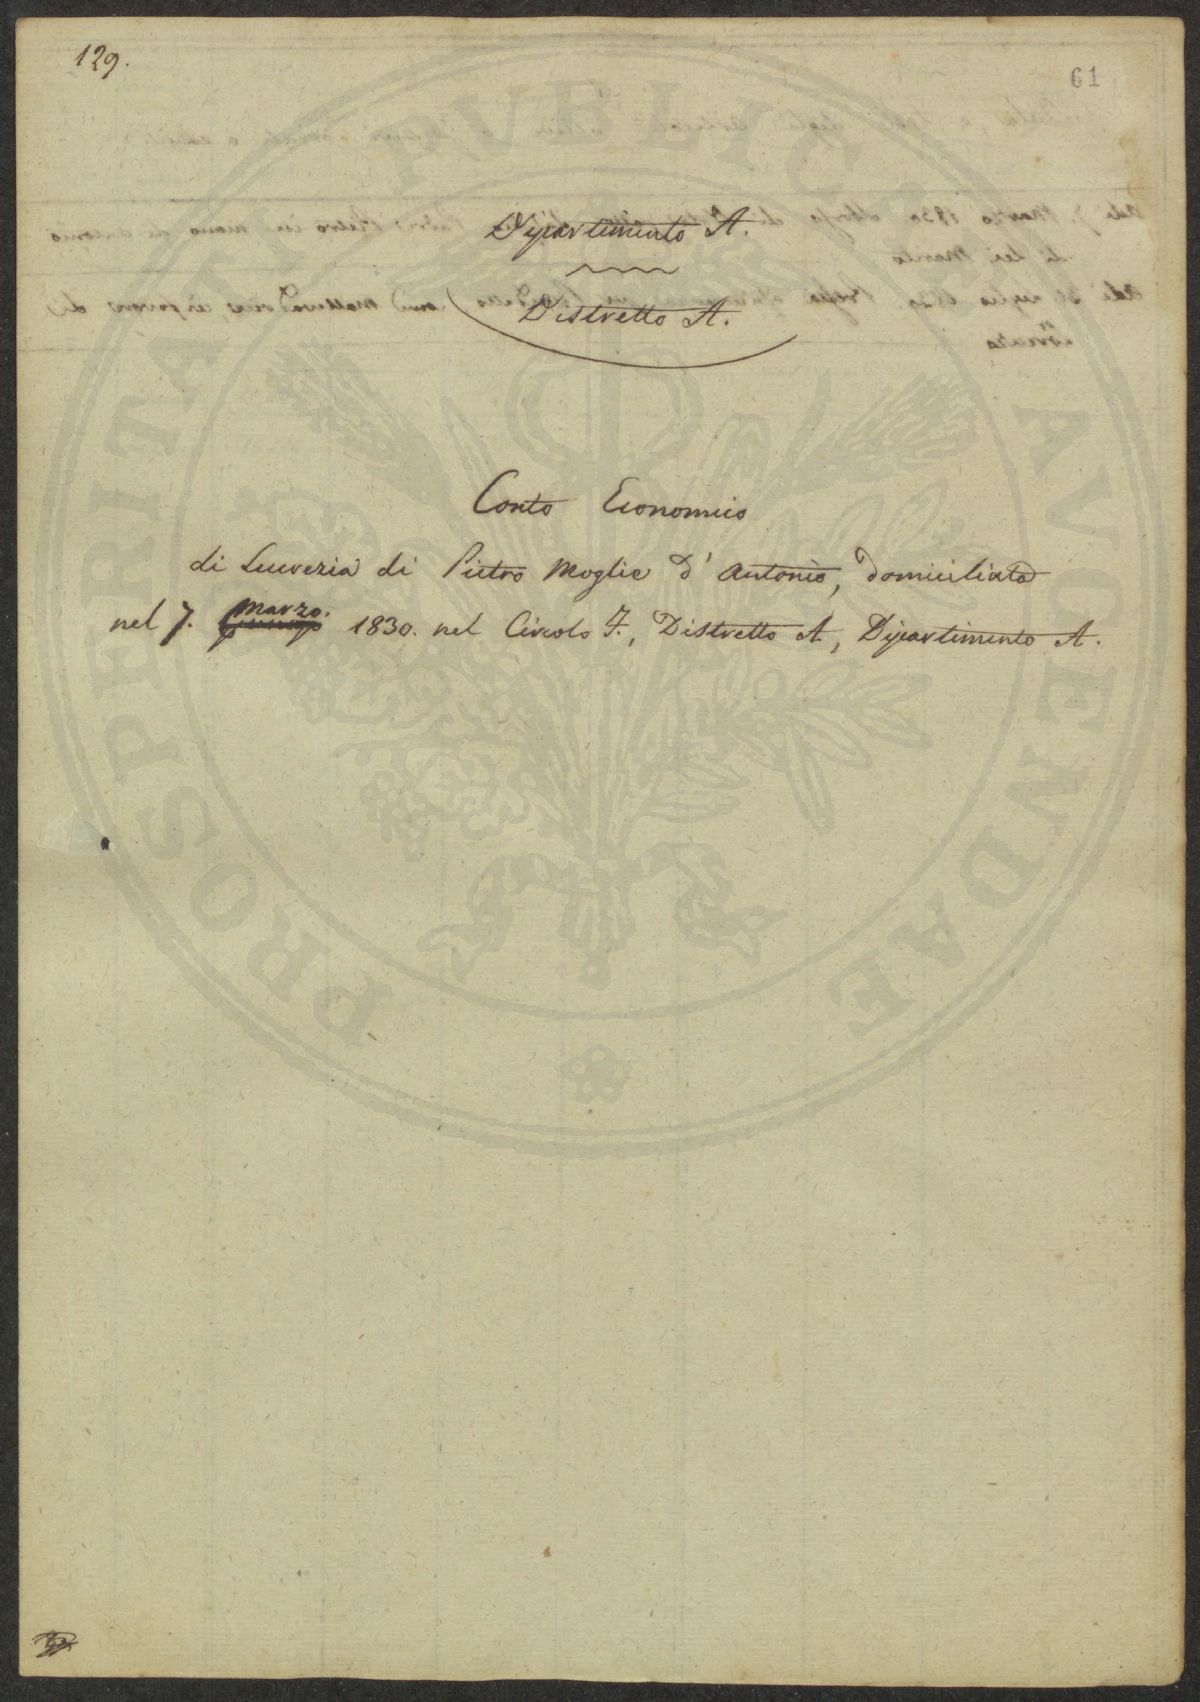 129.
61
Dipartimento A.
Distretto A.
Conto Economico
di Lucrezia di Pietro Moglie d'Antonio, domiciliata
marzo.
nel 7. 1830. nel Circolo F., Distretto A, Dipartimento A.
PROSPERITATI PUBLICAE AUGENDAE